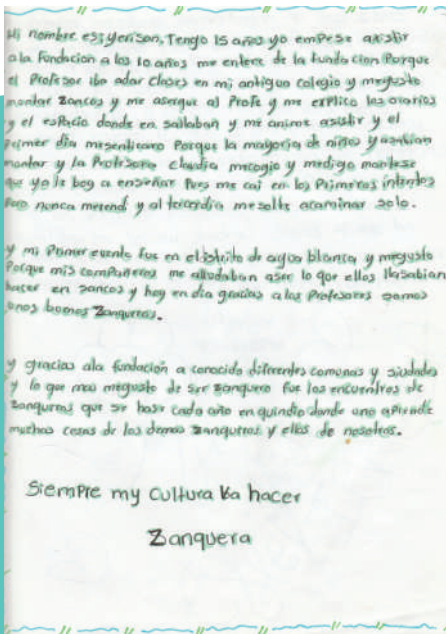 Mi nombre es: yerison, Tengo 15 años yo empese axistir
ala Fundacion a los 10 años me entere de la fundacion Porque
el Profesor iba adar Clases en mi antiguo colegio y megusto
montar zancos y me aserque al Profe y me explico los orarios
y el espacio donde en sallaban y me anime asistir y el
Primer dia misentiraro Porque la mayoria de niños yasabian
montar y la Profesora Claudia mecogio y medigo montese
que yo le boy a enseñar Pues me cai en los Primeros intentos
Pero nunca merendi y al tercerdia mesolte acaminar solo.
y mi Primer evento fue en el distrito de agua blanca y megusto
Porque mis compañeros me alludaban aser lo que ellos llasabian
hacer en zancos y hoy en dia gracias a los Profesores somos
unos buenos Zanqueros.
y gracias ala fundación a conocido diferentes comunas y siudades
y lo que mas megusto de ser zanquero fue los encuentros de
zanqueros que se hase cada año en quindio donde uno aprende
muchas cosas de los demas zanqueros y ellos de nosotros.
Siempre my Cultura Va hacer
Zanquera